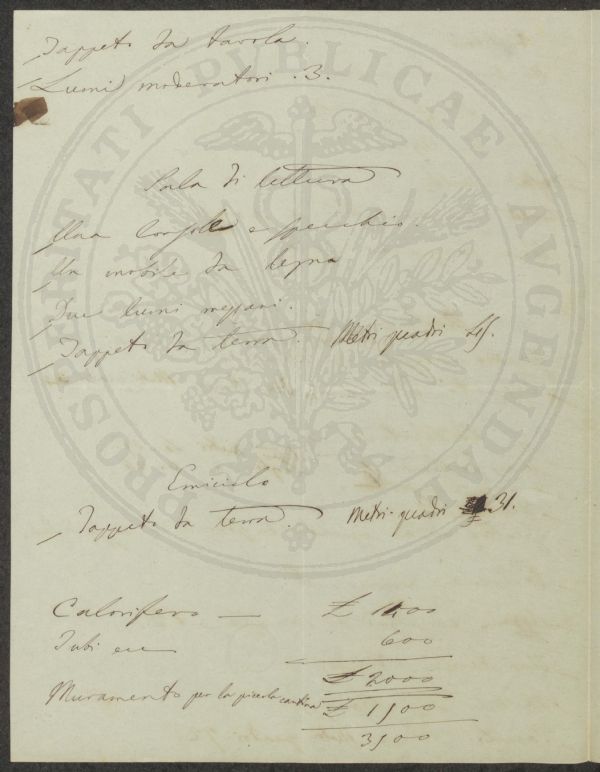 Tappeto da tavola.
Lumi moderatori. 3.
Sala di lettura
Una Consolle e specchio.
Un mobile da legna
Due lumi mezzani.
Tappeto da terra. Metri quadri 45.
Emiciclo
Tappeto da terra. Metri quadri 31.
Calorifero — £ 1400
Tubi ecc 600
£ 2000
Muramento per la piccola cantina £ 1500
3500
PROSPERITATI PUBLICAE AVGENDAE